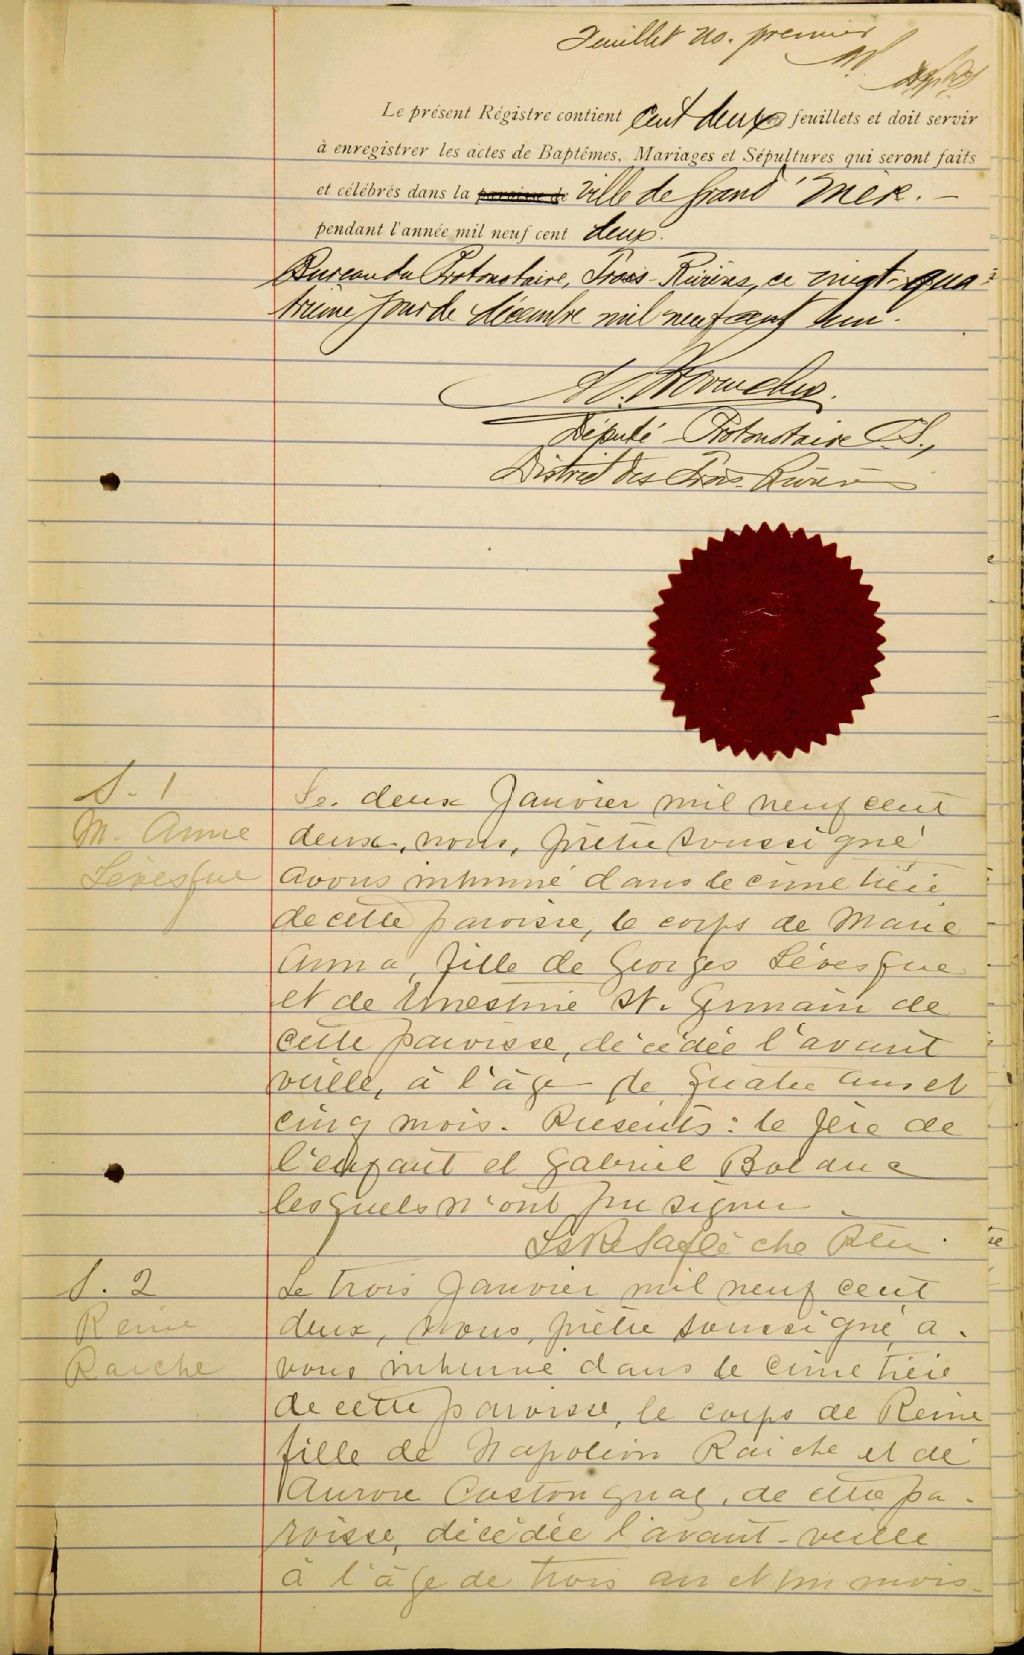 Feuillet no. premier
Le présent Régistre contient cent deux feuillets et doit servir
à enregistrer les actes de Baptêmes, Mariages et Sépultures qui seront faits
et célébrés dans la paroisse de ville de Grand'Mère. –
pendant l'année mil neuf cent deux.
Bureau du Protonotaire, Trois-Rivières, ce vingt-qua-
trième jour de décembre mil neuf cent un.
Député-Protonotaire C.S.,
District des Trois-Rivières
S. 1
M. Anne
Lévesque
Le deux Janvier mil neuf cent
deux, nous, prêtre soussigné
avons inhumé dans le cimetière
de cette paroisse, le corps de Marie
Anna, fille de Georges Lévesque
et de Ernestine St. Germain de
cette paroisse, décédée l'avant
veille, à l'âge de quatre ans et
cinq mois. Présents: le père de
l'enfant et Gabriel Bolduc
lesquels n'ont pu signer.
Laflèche Ptre.
S. 2
Reine
Raiche
Le trois Janvier mil neuf cent
deux, nous, prêtre soussigné, a-
vons inhumé dans le cimetière
de cette paroisse, le corps de Reine
fille de Napoléon Raiche et de
Aurore Castonguay, de cette pa-
roisse, décédée l'avant-veille
à l'âge de trois an et un mois.